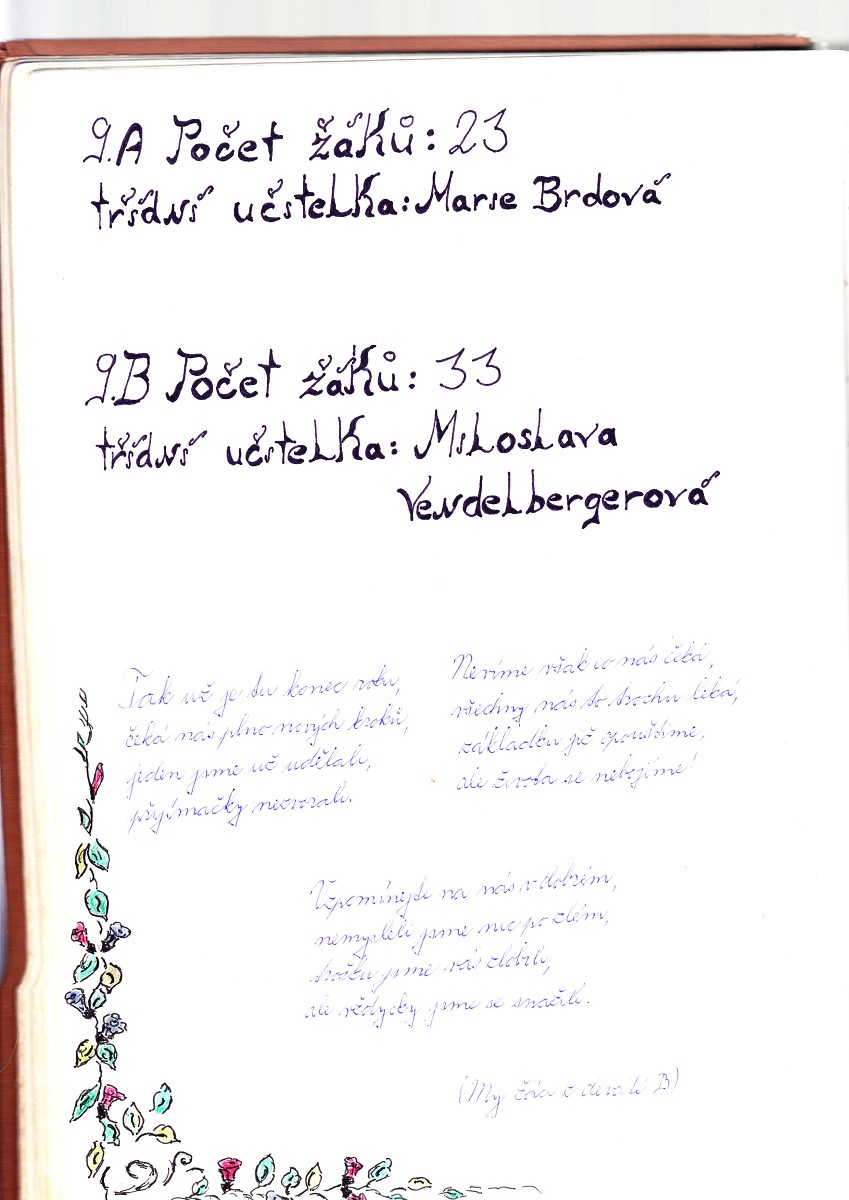 9.A Počet žáků: 23
třídní učitelka: Marie Brdová
9.B Počet žáků: 33
třídní učitelka: Miloslava
Vendelbergerová
Tak už je tu konec roku,
čeká nás plno nových kroků,
jeden jsme už udělali,
přijímačky nezvorali.
Nevíme však co nás čeká,
všechny nás to trochu leká,
základku již opouštíme,
ale života se nebojíme!
Vzpomínejte na nás v dobrém,
nemysleli jsme nic po zlém,
trošku jsme vás zlobili,
ale vždycky jsme se snažili.
(My žáci z devaté B)